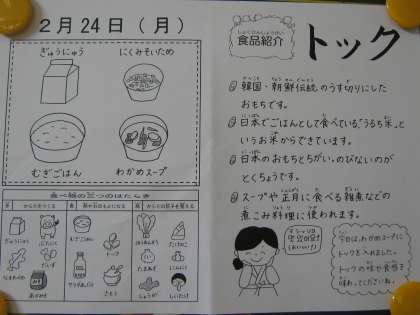 2月24日(月)
ぎゅうにゅう
にくみそいため
むぎごはん
わかめスープ
食べ物の三つのはたらき
赤 からだをつくる
黄 熱や力のもとになる
緑 からだの調子を整える
ぎゅうにゅう
ぶたにく
むぎごはん
トック
たけのこ
たまねぎ
にんにく
さとう
しょうが
しいたけ
しょくひんしょうかい
食品紹介
トック
韓国・朝鮮伝統のうす切りにした
おもちです。
日本でごはんとして食べている"うるち米"と
いうお米からできています。
日本のおもちとちがい、のびないのが
とくちょうです。
スープや正月に食べる雑煮などの
煮こみ料理に使われます。
今日は、わかめスープに
トックを入れました。
トックの味や食感を
味わってくださいね。